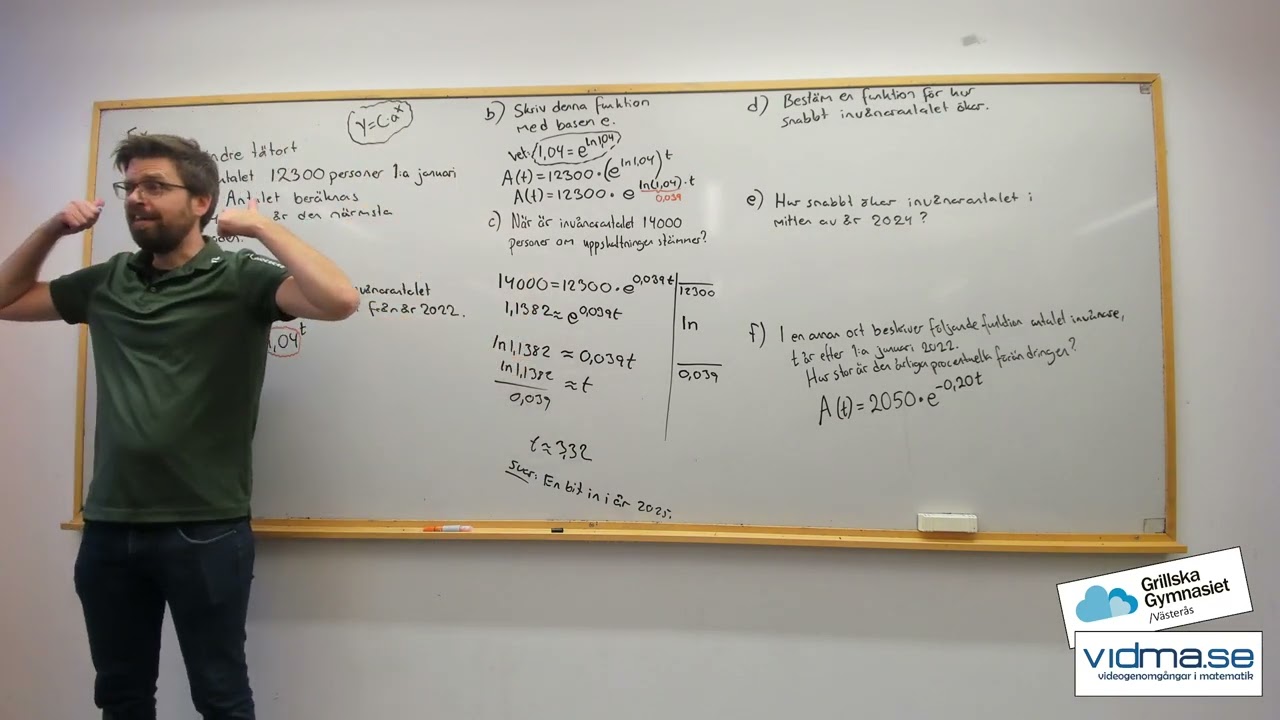 Ex
y=C·a^x
ndre tätort
talet 12300 personer 1:a januari
Antalet beräknas
är den närmsta
oden.
vånarantalet
från år 2022.
1,04^t
b) Skriv denna funktion
med basen e.
vet: 1,04 = e^{ln1,04}
A(t)=12300·(e^{ln1,04})^t
A(t)=12300·e^{ln(1,04)·t}
0,039
c) När är invånarantalet 14000
personer om uppskattningen stämmer?
14000=12300·e^{0,039t}
12300
1,1382≈e^{0,039t}
ln
ln1,1382≈0,039t
0,039
ln1,1382
0,039
≈t
t≈3,32
svar: En bit in i år 2025.
d) Bestäm en funktion för hur
snabbt invånarantalet ökar.
e) Hur snabbt ökar invånarantalet i
mitten av år 2024?
f) I en annan ort beskriver följande funktion antalet invånare,
t år efter 1:a januari 2022.
Hur stor är den årliga procentuella förändringen?
A(t)=2050·e^{-0,20t}
Grillska
Gymnasiet
/Västerås
vidma.se
videogenomgångar i matematik